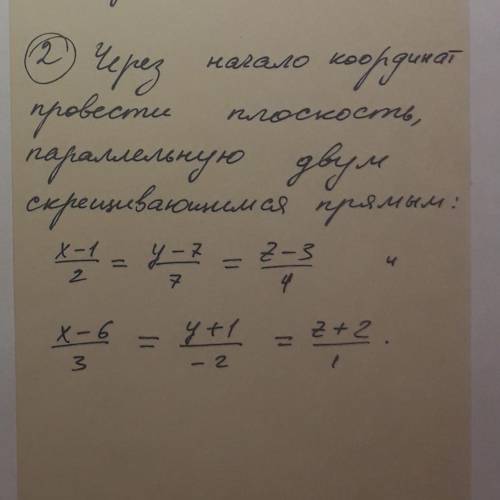 2 Через начало координат
провести плоскость,
параллельную двум
скрещивающимся прямым:
x-1/2 = y-7/7 = z-3/4 и
x-6/3 = y+1/-2 = z+2/1.